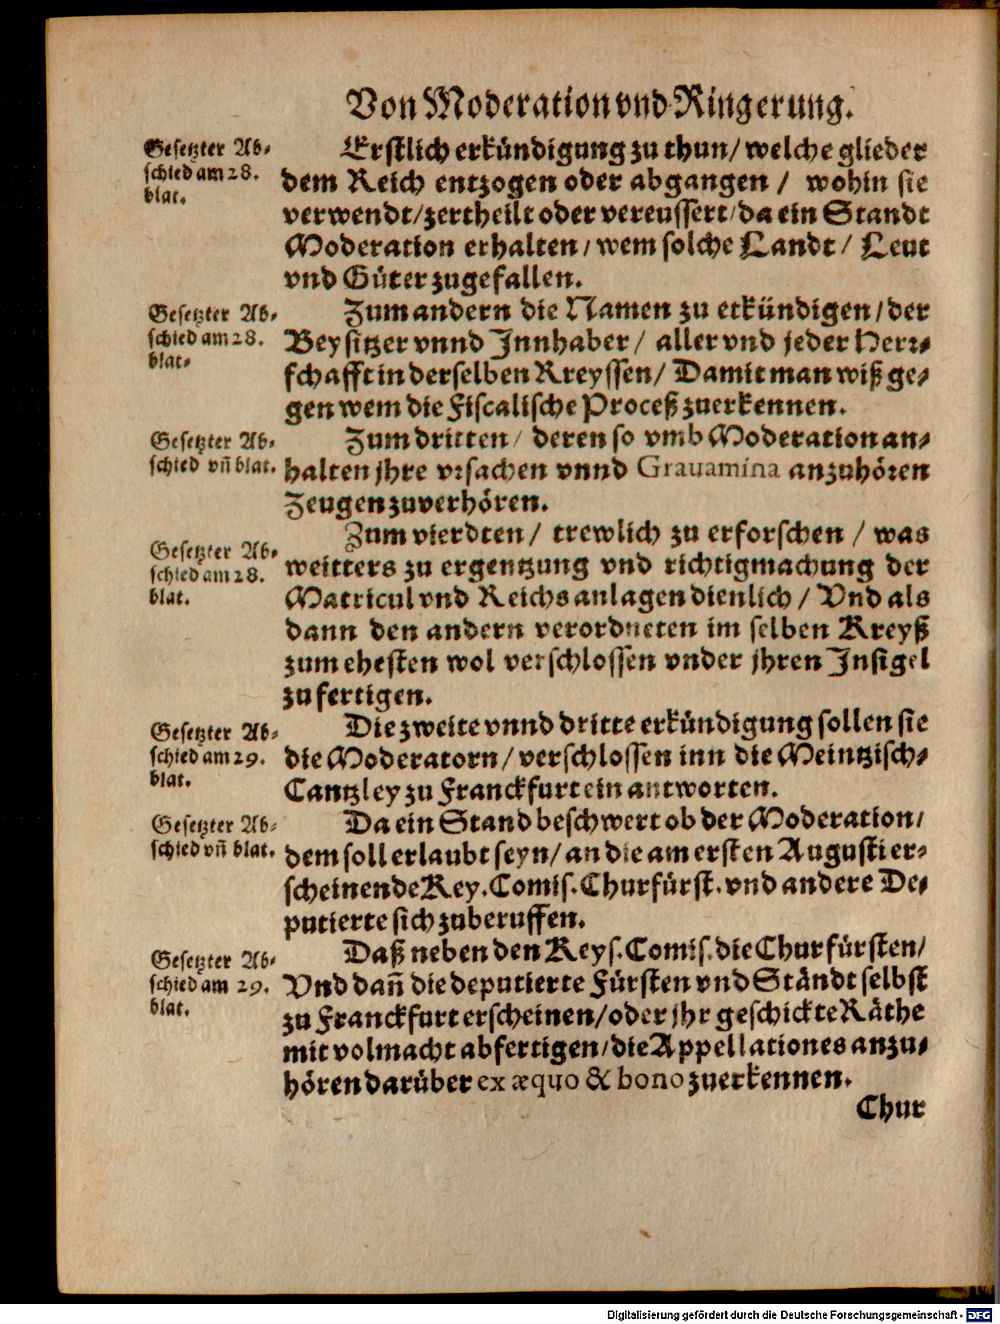 Von Moderation vnd Ringerung.
Gesetzter Ab-
schied am 28.
blat.
Erstlich erkündigung zu thun/ welche glieder
dem Reich entzogen oder abgangen / wohin sie
verwendt/ zertheilt oder vereussert/ da ein Standt
Moderation erhalten/ wem solche Landt/ Leut
vnd Güter zugefallen.
Gesetzter Ab-
schied am 28.
blat.
Zum andern die Namen zu erkündigen/ der
Beysitzer vnnd Innhaber/ aller vnd jeder Herr-
schafft in derselben Kreyssen/ Damit man wiß ge-
gen wem die Fiscalische Proceß zuerkennen.
Gesetzter Ab-
schied vñ blat.
Zum dritten/ deren so vmb Moderation an-
halten jhre vrsachen vnnd Grauamina anzuhören
Zeugen zuverhören.
Gesetzter Ab-
schied am 28.
blat.
Zum vierdten/ trewlich zu erforschen / was
weitters zu ergentzung vnd richtigmachung der
Matricul vnd Reichs anlagen dienlich / Vnd als
dann den andern verordneten im selben Kreyß
zum ehesten wol verschlossen vnder jhren Insigel
zu fertigen.
Gesetzter Ab-
schied am 29.
blat.
Die zweite vnnd dritte erkündigung sollen sie
die Moderatorn/ verschlossen inn die Meintzisch-
Cantzley zu Franckfurt ein antworten.
Gesetzter Ab-
schied vñ blat.
Da ein Stand beschwert ob der Moderation/
dem soll erlaubt seyn/ an die am ersten Augusti er-
scheinende Key. Comis. Churfürst. vnd andere De-
putierte sich zuberuffen.
Gesetzter Ab-
schied am 29.
blat.
Daß neben den Keys. Comis. die Churfürsten/
Vnd dañ die deputierte Fürsten vnd Ständt selbst
zu Franckfurt erscheinen/ oder jhr geschickte Räthe
mit volmacht abfertigen/ die Appellationes anzu-
hören darüber ex æquo & bono zuerkennen.
Chur
Digitalisierung gefördert durch die Deutsche Forschungsgemeinschaft - DFG